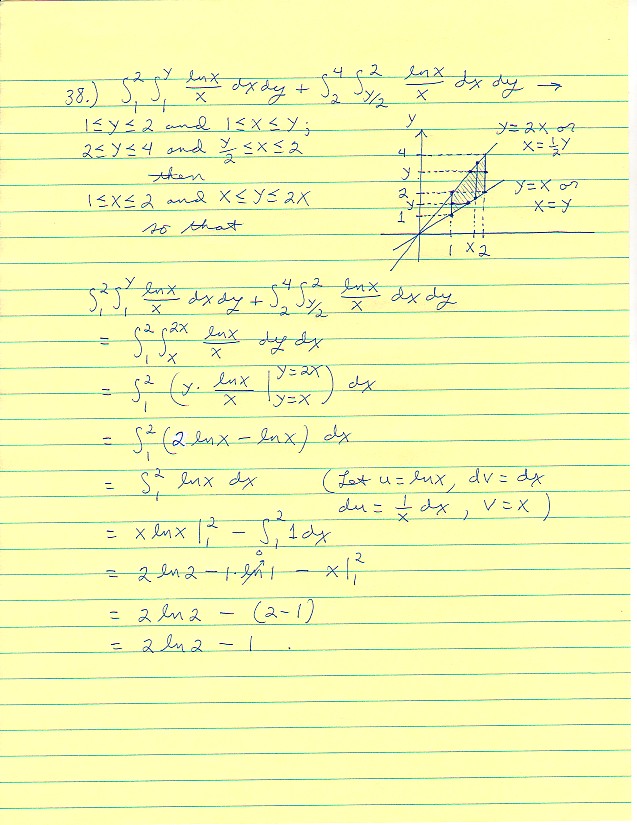 38.) ∫₁² ∫₁^y lnx/x dxdy + ∫₂⁴ ∫_{y/2}² lnx/x dx dy →
1≤y≤2 and 1≤x≤y;
2≤y≤4 and y/2 ≤x≤2
then
1≤x≤2 and x≤y≤2x
so that
y
4
y
2
y
1
1 x 2
y=2x or
x=½y
y=x or
x=y
∫₁² ∫₁^y lnx/x dxdy + ∫₂⁴ ∫_{y/2}² lnx/x dxdy
= ∫₁² ∫ₓ^{2x} lnx/x dy dx
= ∫₁² (y· lnx/x |_{y=x}^{y=2x}) dx
= ∫₁² (2lnx − lnx) dx
= ∫₁² lnx dx (Let u=lnx, dv=dx
du= 1/x dx, v=x)
= xlnx |₁² − ∫₁² 1dx
= 2ln2 − 1·ln1 0 − x|₁²
= 2ln2 − (2−1)
= 2ln2 − 1.